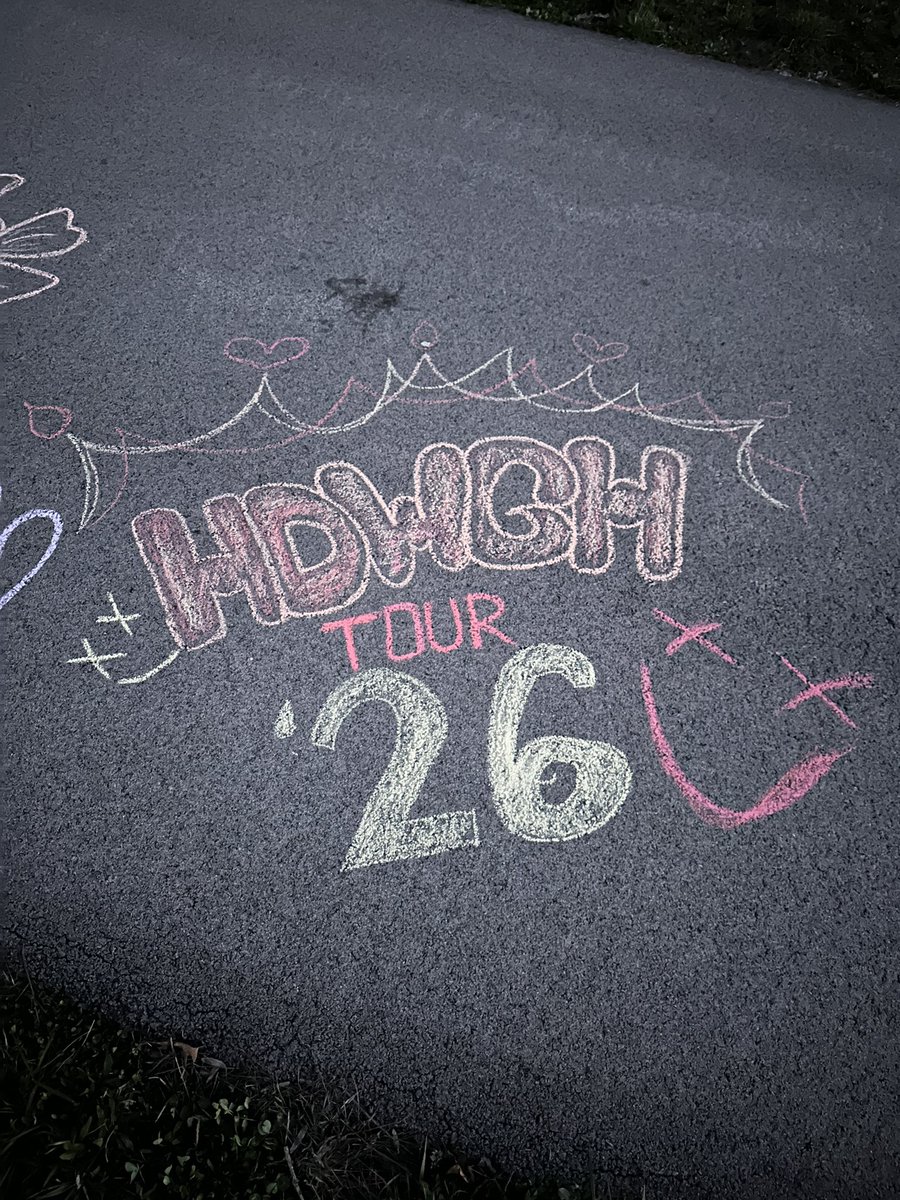 HDWGH
TOUR
'26